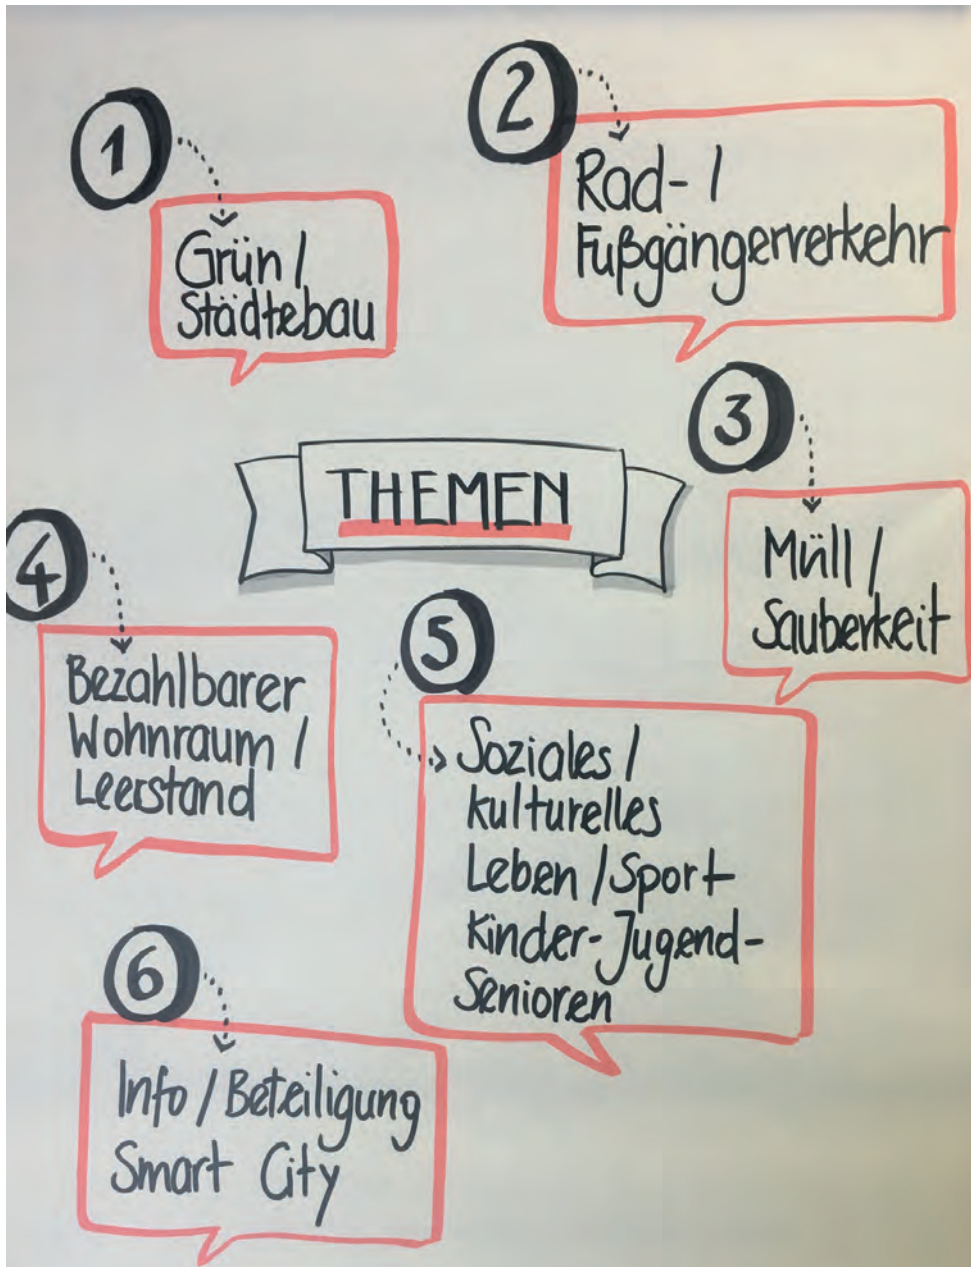 1
Grün /
Städtebau
2
Rad- /
Fußgängerverkehr
THEMEN
3
Müll /
Sauberkeit
4
Bezahlbarer
Wohnraum /
Leerstand
5
Soziales /
kulturelles
Leben / Sport
Kinder-Jugend-
Senioren
6
Info / Beteiligung
Smart City